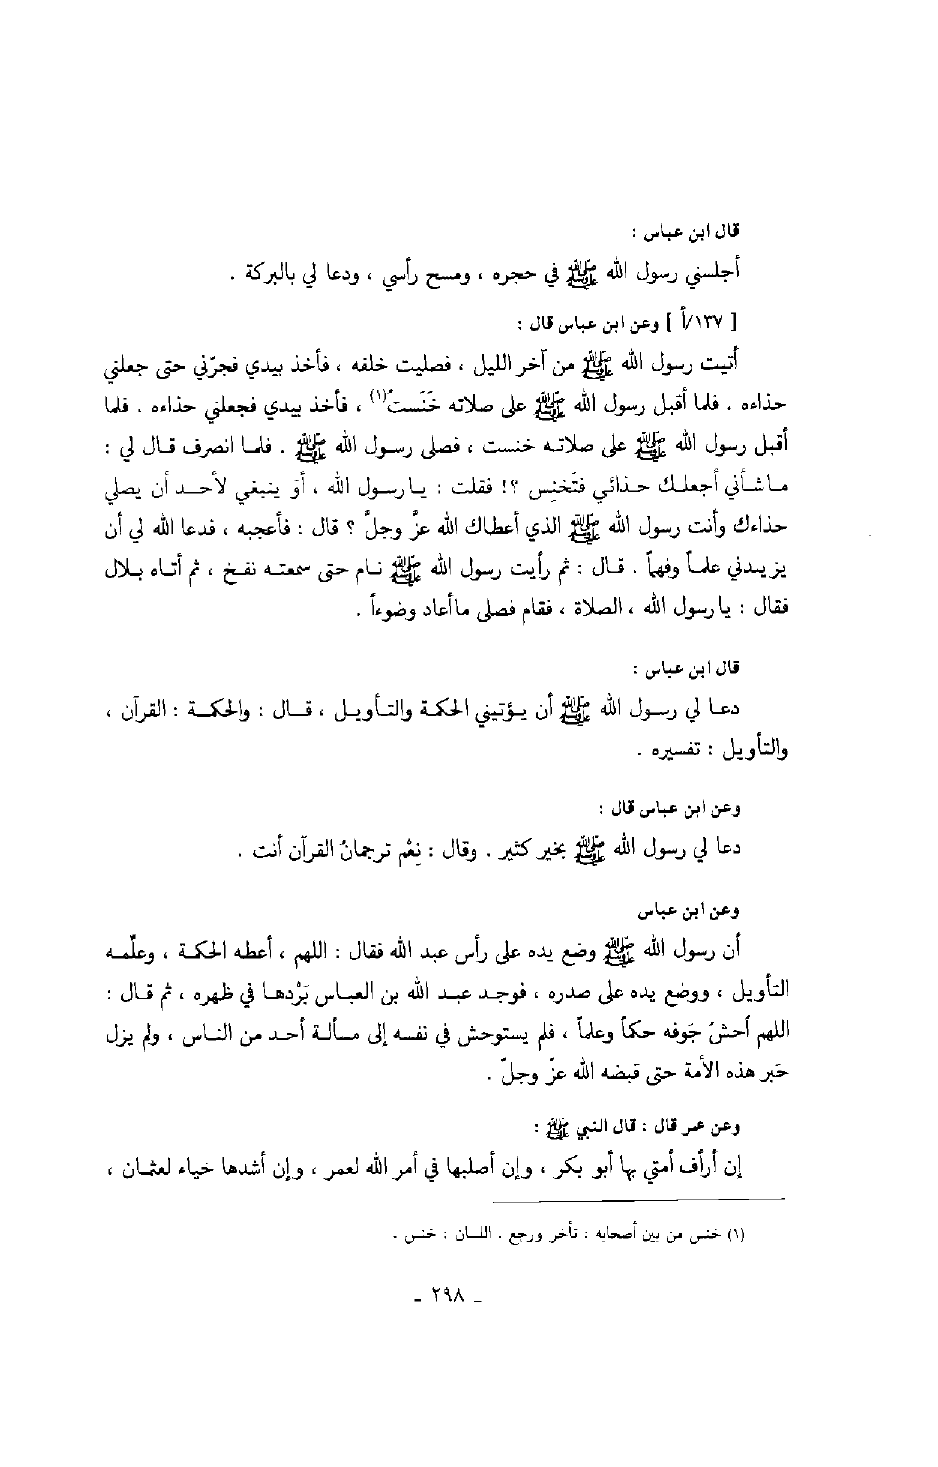 قال ابن عباس :
أجلسني رسول الله ﷺ في حجره ، ومسح رأسي ، ودعا لي بالبركة .
[ ١٣٧/أ ] وعن ابن عباس قال :
أتيت رسول الله ﷺ من آخر الليل ، فصليت خلفه ، فأخذ بيدي فجرّني حتى جعلني
حذاءه . فلما أقبل رسول الله ﷺ على صلاته خَنَستُ(١) ، فأخذ بيدي فجعلني حذاءه . فلما
أقبل رسول الله ﷺ على صلاته خنست ، فصلى رسول الله ﷺ . فلما انصرف قال لي :
ماشأني أجعلك حذائي فتَخنِس ؟! فقلت : يارسول الله ، أوَ ينبغي لأحد أن يصلي
حذاءك وأنت رسول الله ﷺ الذي أعطاك الله عزَّ وجلَّ ؟ قال : فأعجبه ، فدعا الله لي أن
يزيدني علماً وفهماً . قال : ثم رأيت رسول الله ﷺ نام حتى سمعته نفخ ، ثم أتاه بلال
فقال : يارسول الله ، الصلاة ، فقام فصلى ماأعاد وضوءاً .
قال ابن عباس :
دعا لي رسول الله ﷺ أن يؤتيني الحكمة والتأويل ، قال : والحكمة : القرآن ،
والتأويل : تفسيره .
وعن ابن عباس قال :
دعا لي رسول الله ﷺ بخير كثير . وقال : نِعْم ترجمانُ القرآن أنت .
وعن ابن عباس
أن رسول الله ﷺ وضع يده على رأس عبد الله فقال : اللهم ، أعطه الحكمة ، وعلّمه
التأويل ، ووضع يده على صدره ، فوجد عبد الله بن العباس بَرْدها في ظهره ، ثم قال :
اللهم آحشُ جَوفه حكماً وعلماً ، فلم يستوحش في نفسه إلى مسألة أحد من الناس ، ولم يزل
حَبر هذه الأمة حتى قبضه الله عزّ وجلّ .
وعن عمر قال : قال النبي ﷺ :
إن أرأف أمتي بها أبو بكر ، وإن أصلبها في أمر الله لعمر ، وإن أشدها حياء لعثمان ،
(١) خنس من بين أصحابه : تأخر ورجع . اللسان : خنس .
ـ ٢٩٨ ـ